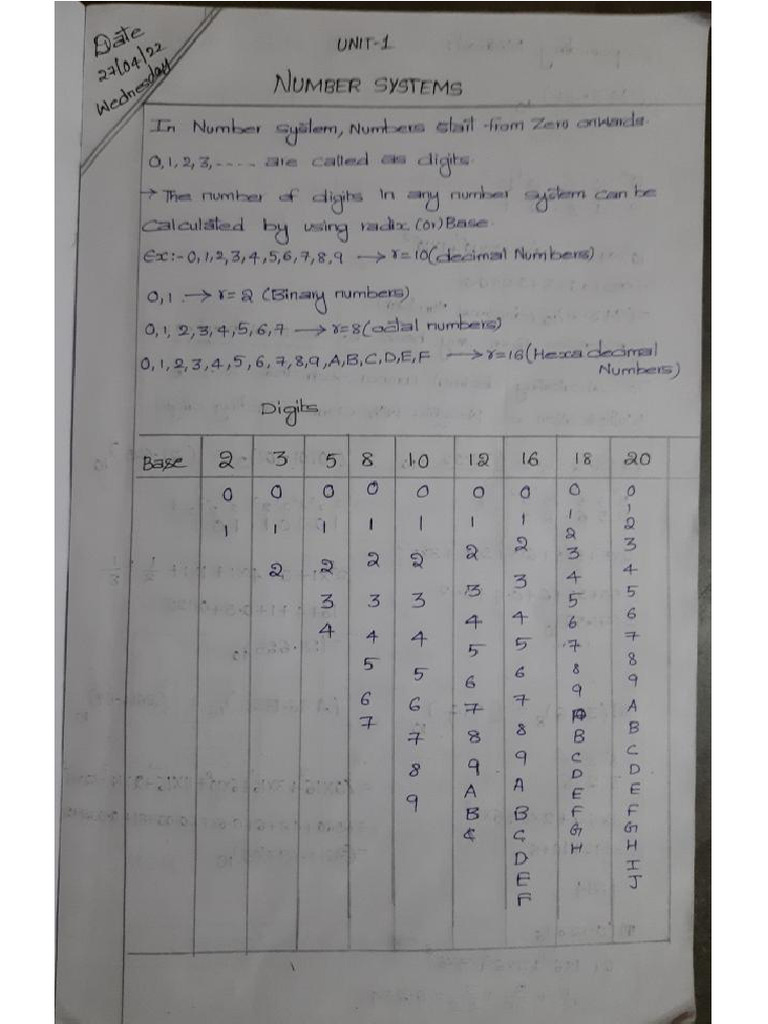 Date
27/04/22
Wednesday
UNIT-1
NUMBER SYSTEMS
In Number system, Numbers start from Zero onwards
0,1,2,3,..... are called as digits.
→ The number of digits in any number system can be
calculated by using radix (or) Base.
Ex:- 0,1,2,3,4,5,6,7,8,9 → r=10(decimal Numbers)
0,1 → r=2 (Binary numbers)
0,1,2,3,4,5,6,7 → r=8(octal numbers)
0,1,2,3,4,5,6,7,8,9,A,B,C,D,E,F → r=16(Hexa decimal
Numbers)
Digits
Base 2 3 5 8 10 12 16 18 20
0 0 0 0 0 0 0 0 0
1 1 1 1 1 1 1 1 1
2 2 2 2 2 2 2 2
3 3 3 3 3 3 3
4 4 4 4 4 4 4
5 5 5 5 5 5
6 6 6 6 6 6
7 7 7 7 7 7
8 8 8 8 8
9 9 9 9 9
A A A A
B B B B
C C C C
D D D
E E E
F F F
G G
H H
I
J